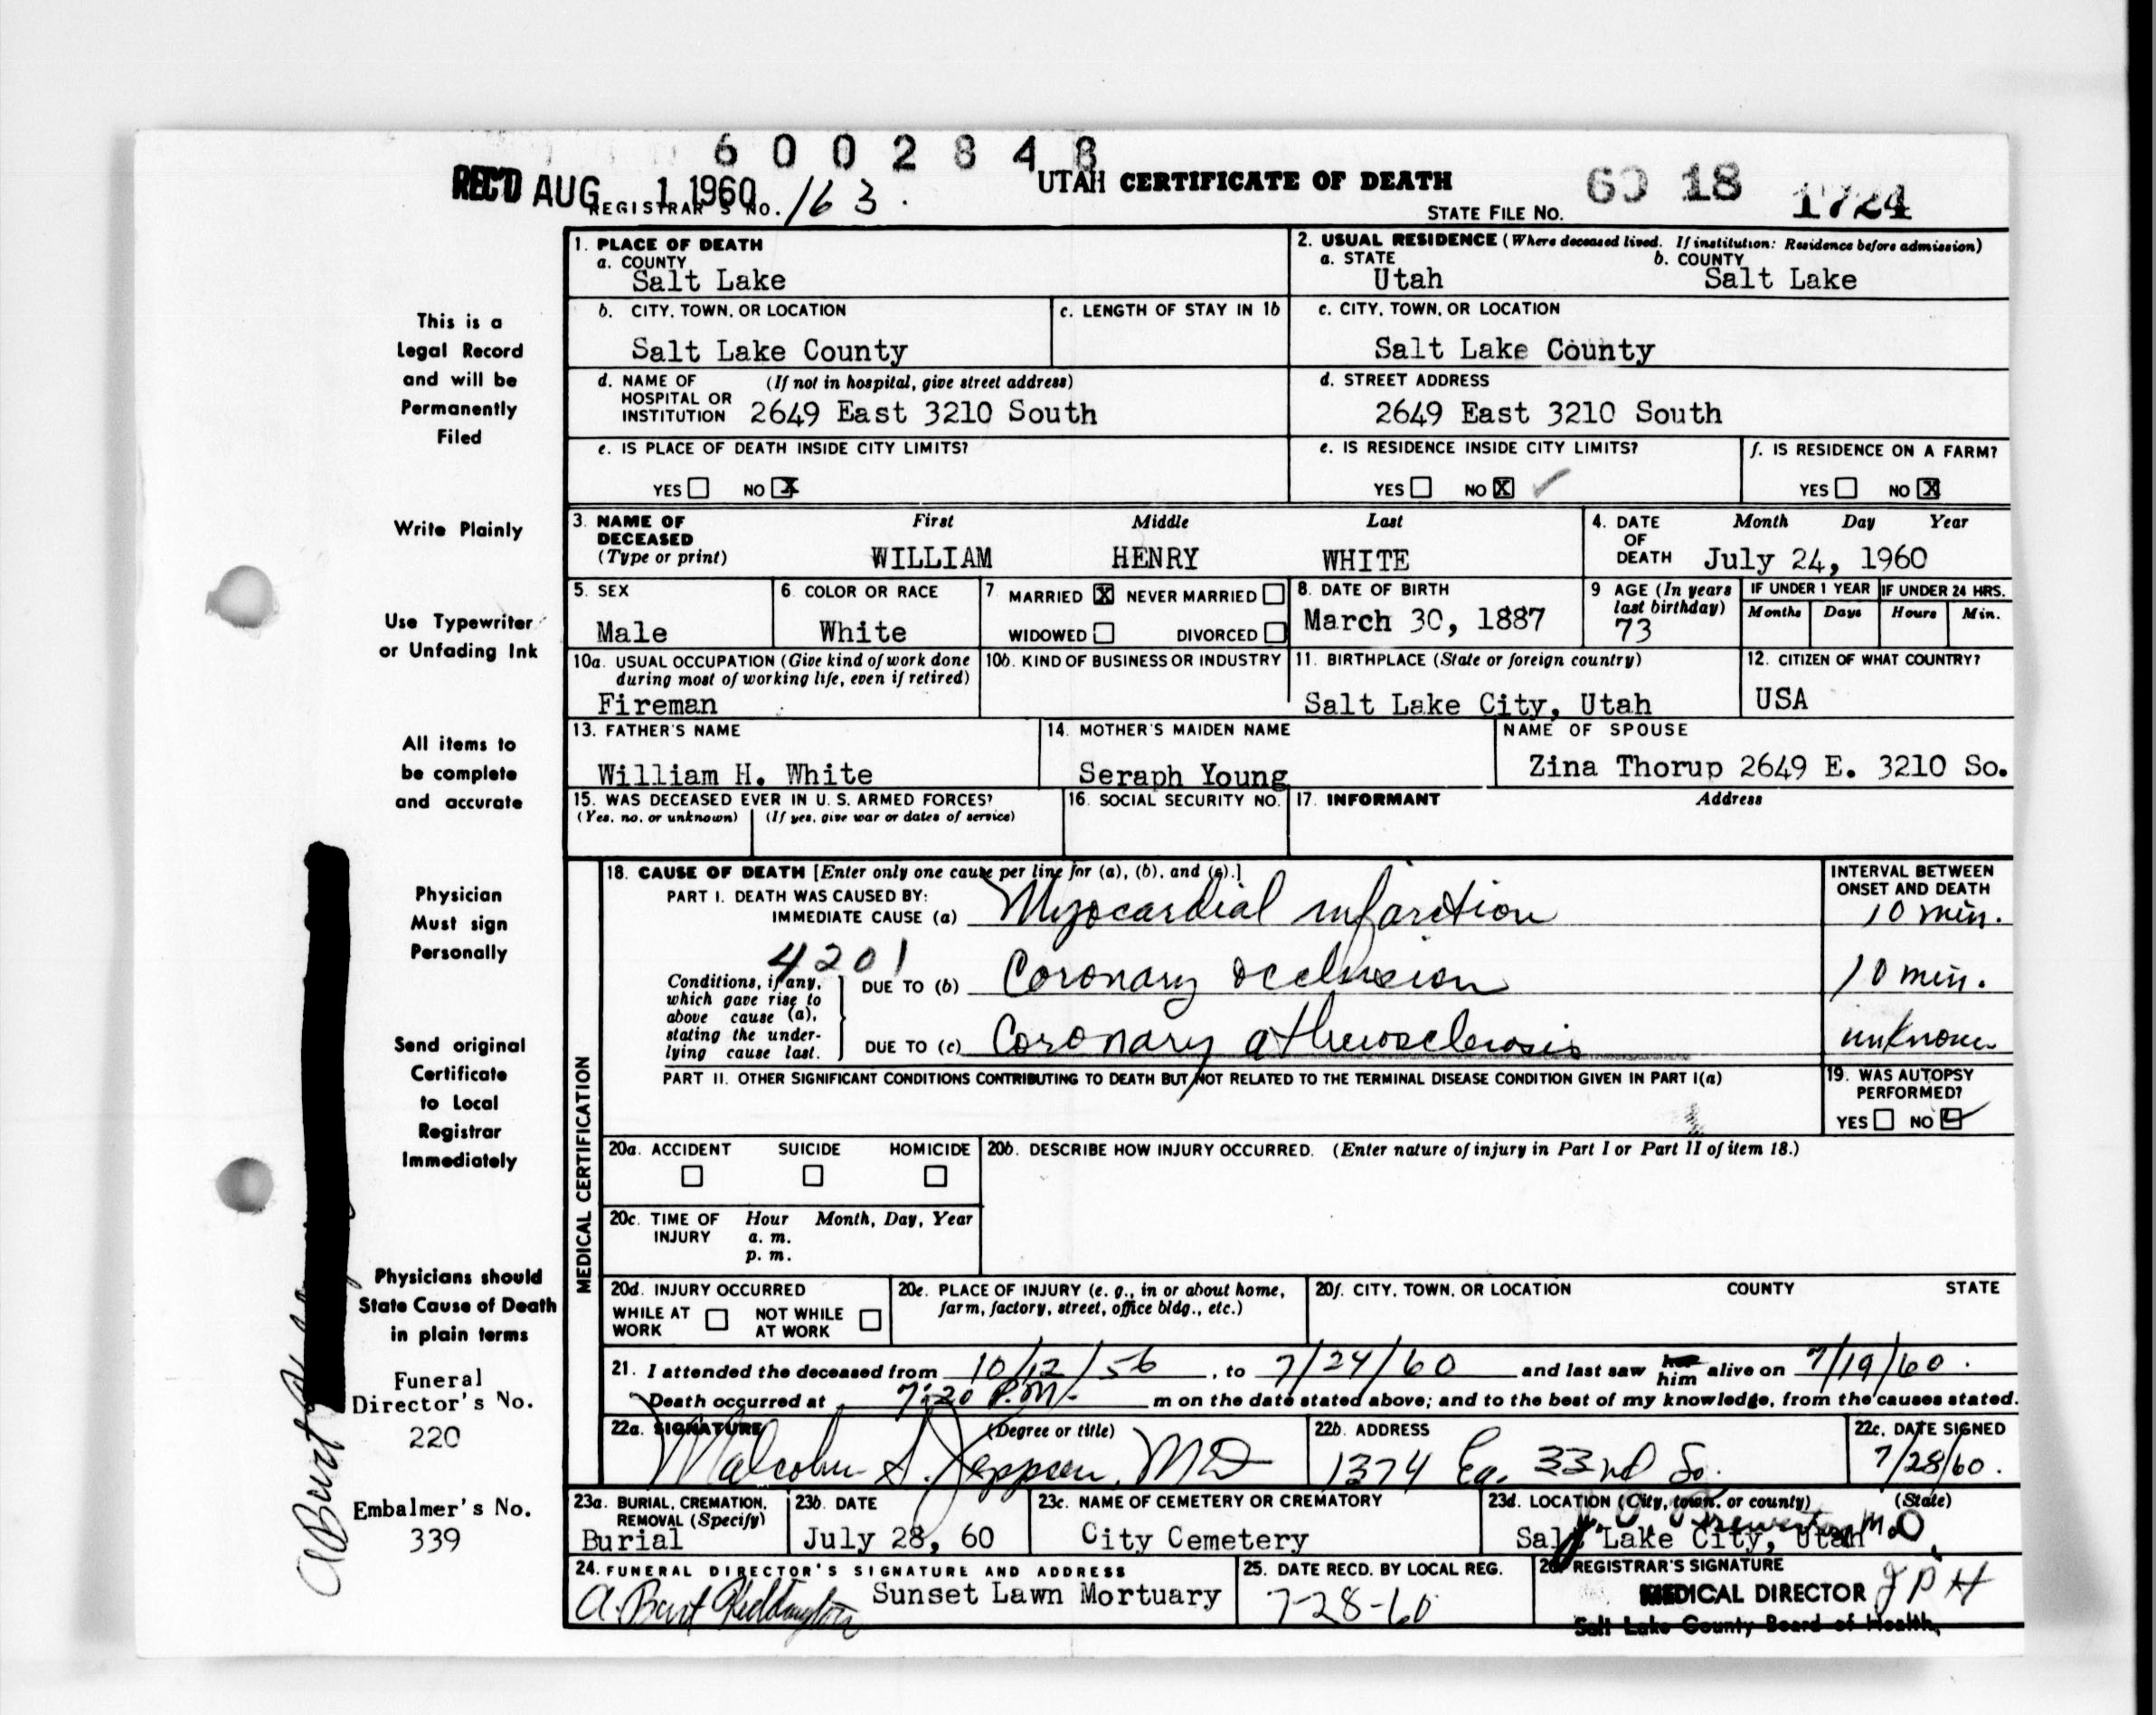 6 0 0 2 8 4 8
REC'D AUG 1 1960
REGISTRAR'S NO. 163.
UTAH CERTIFICATE OF DEATH
STATE FILE NO. 60 18 1724
This is a
Legal Record
and will be
Permanently
Filed
Write Plainly
Use Typewriter
or Unfading Ink
All items to
be complete
and accurate
Physician
Must sign
Personally
Send original
Certificate
to Local
Registrar
Immediately
Physicians should
State Cause of Death
in plain terms
Funeral
Director's No.
220
Embalmer's No.
339
A Burt
1. PLACE OF DEATH
a. COUNTY
Salt Lake
2. USUAL RESIDENCE (Where deceased lived. If institution: Residence before admission)
a. STATE b. COUNTY
Utah Salt Lake
b. CITY, TOWN, OR LOCATION
Salt Lake County
c. LENGTH OF STAY IN 1b
c. CITY, TOWN, OR LOCATION
Salt Lake County
d. NAME OF (If not in hospital, give street address)
HOSPITAL OR
INSTITUTION 2649 East 3210 South
d. STREET ADDRESS
2649 East 3210 South
e. IS PLACE OF DEATH INSIDE CITY LIMITS?
YES NO X
e. IS RESIDENCE INSIDE CITY LIMITS?
YES NO X
f. IS RESIDENCE ON A FARM?
YES NO X
3. NAME OF First Middle Last
DECEASED
(Type or print) WILLIAM HENRY WHITE
4. DATE Month Day Year
OF
DEATH July 24, 1960
5. SEX
Male
6. COLOR OR RACE
White
7 MARRIED X NEVER MARRIED
WIDOWED DIVORCED
8. DATE OF BIRTH
March 30, 1887
9 AGE (In years
last birthday)
73
IF UNDER 1 YEAR
Months Days
IF UNDER 24 HRS.
Hours Min.
10a. USUAL OCCUPATION (Give kind of work done
during most of working life, even if retired)
Fireman
10b. KIND OF BUSINESS OR INDUSTRY
11. BIRTHPLACE (State or foreign country)
Salt Lake City, Utah
12. CITIZEN OF WHAT COUNTRY?
USA
13. FATHER'S NAME
William H. White
14. MOTHER'S MAIDEN NAME
Seraph Young
NAME OF SPOUSE
Zina Thorup 2649 E. 3210 So.
15. WAS DECEASED EVER IN U. S. ARMED FORCES?
(Yes, no, or unknown) (If yes, give war or dates of service)
16. SOCIAL SECURITY NO.
17. INFORMANT Address
MEDICAL CERTIFICATION
18. CAUSE OF DEATH [Enter only one cause per line for (a), (b), and (c).]
PART I. DEATH WAS CAUSED BY:
IMMEDIATE CAUSE (a) Myocardial infarction
INTERVAL BETWEEN
ONSET AND DEATH
10 min.
4201
Conditions, if any,
which gave rise to
above cause (a),
stating the under-
lying cause last.
DUE TO (b) Coronary occlusion 10 min.
DUE TO (c) Coronary atherosclerosis unknown
PART II. OTHER SIGNIFICANT CONDITIONS CONTRIBUTING TO DEATH BUT NOT RELATED TO THE TERMINAL DISEASE CONDITION GIVEN IN PART I(a)
19. WAS AUTOPSY
PERFORMED?
YES NO
20a. ACCIDENT SUICIDE HOMICIDE
20b. DESCRIBE HOW INJURY OCCURRED. (Enter nature of injury in Part I or Part II of item 18.)
20c. TIME OF Hour Month, Day, Year
INJURY a. m.
p. m.
20d. INJURY OCCURRED
WHILE AT NOT WHILE
WORK AT WORK
20e. PLACE OF INJURY (e. g., in or about home,
farm, factory, street, office bldg., etc.)
20f. CITY, TOWN, OR LOCATION COUNTY STATE
21. I attended the deceased from 10/12/56, to 7/24/60 and last saw her him alive on 7/19/60.
Death occurred at 7:20 P.M. m on the date stated above; and to the best of my knowledge, from the causes stated.
22a. SIGNATURE (Degree or title)
Malcolm S. Jeppsen, MD
22b. ADDRESS
1374 Ea. 33nd So.
22c. DATE SIGNED
7/28/60.
23a. BURIAL, CREMATION,
REMOVAL (Specify)
Burial
23b. DATE
July 28, 60
23c. NAME OF CEMETERY OR CREMATORY
City Cemetery
23d. LOCATION (City, town, or county) (State)
Salt Lake City, Utah
24. FUNERAL DIRECTOR'S SIGNATURE AND ADDRESS
A. Burt Sunset Lawn Mortuary
25. DATE RECD. BY LOCAL REG.
7-28-60
26. REGISTRAR'S SIGNATURE
M.D.
MEDICAL DIRECTOR JPH
Salt Lake County Board of Health,